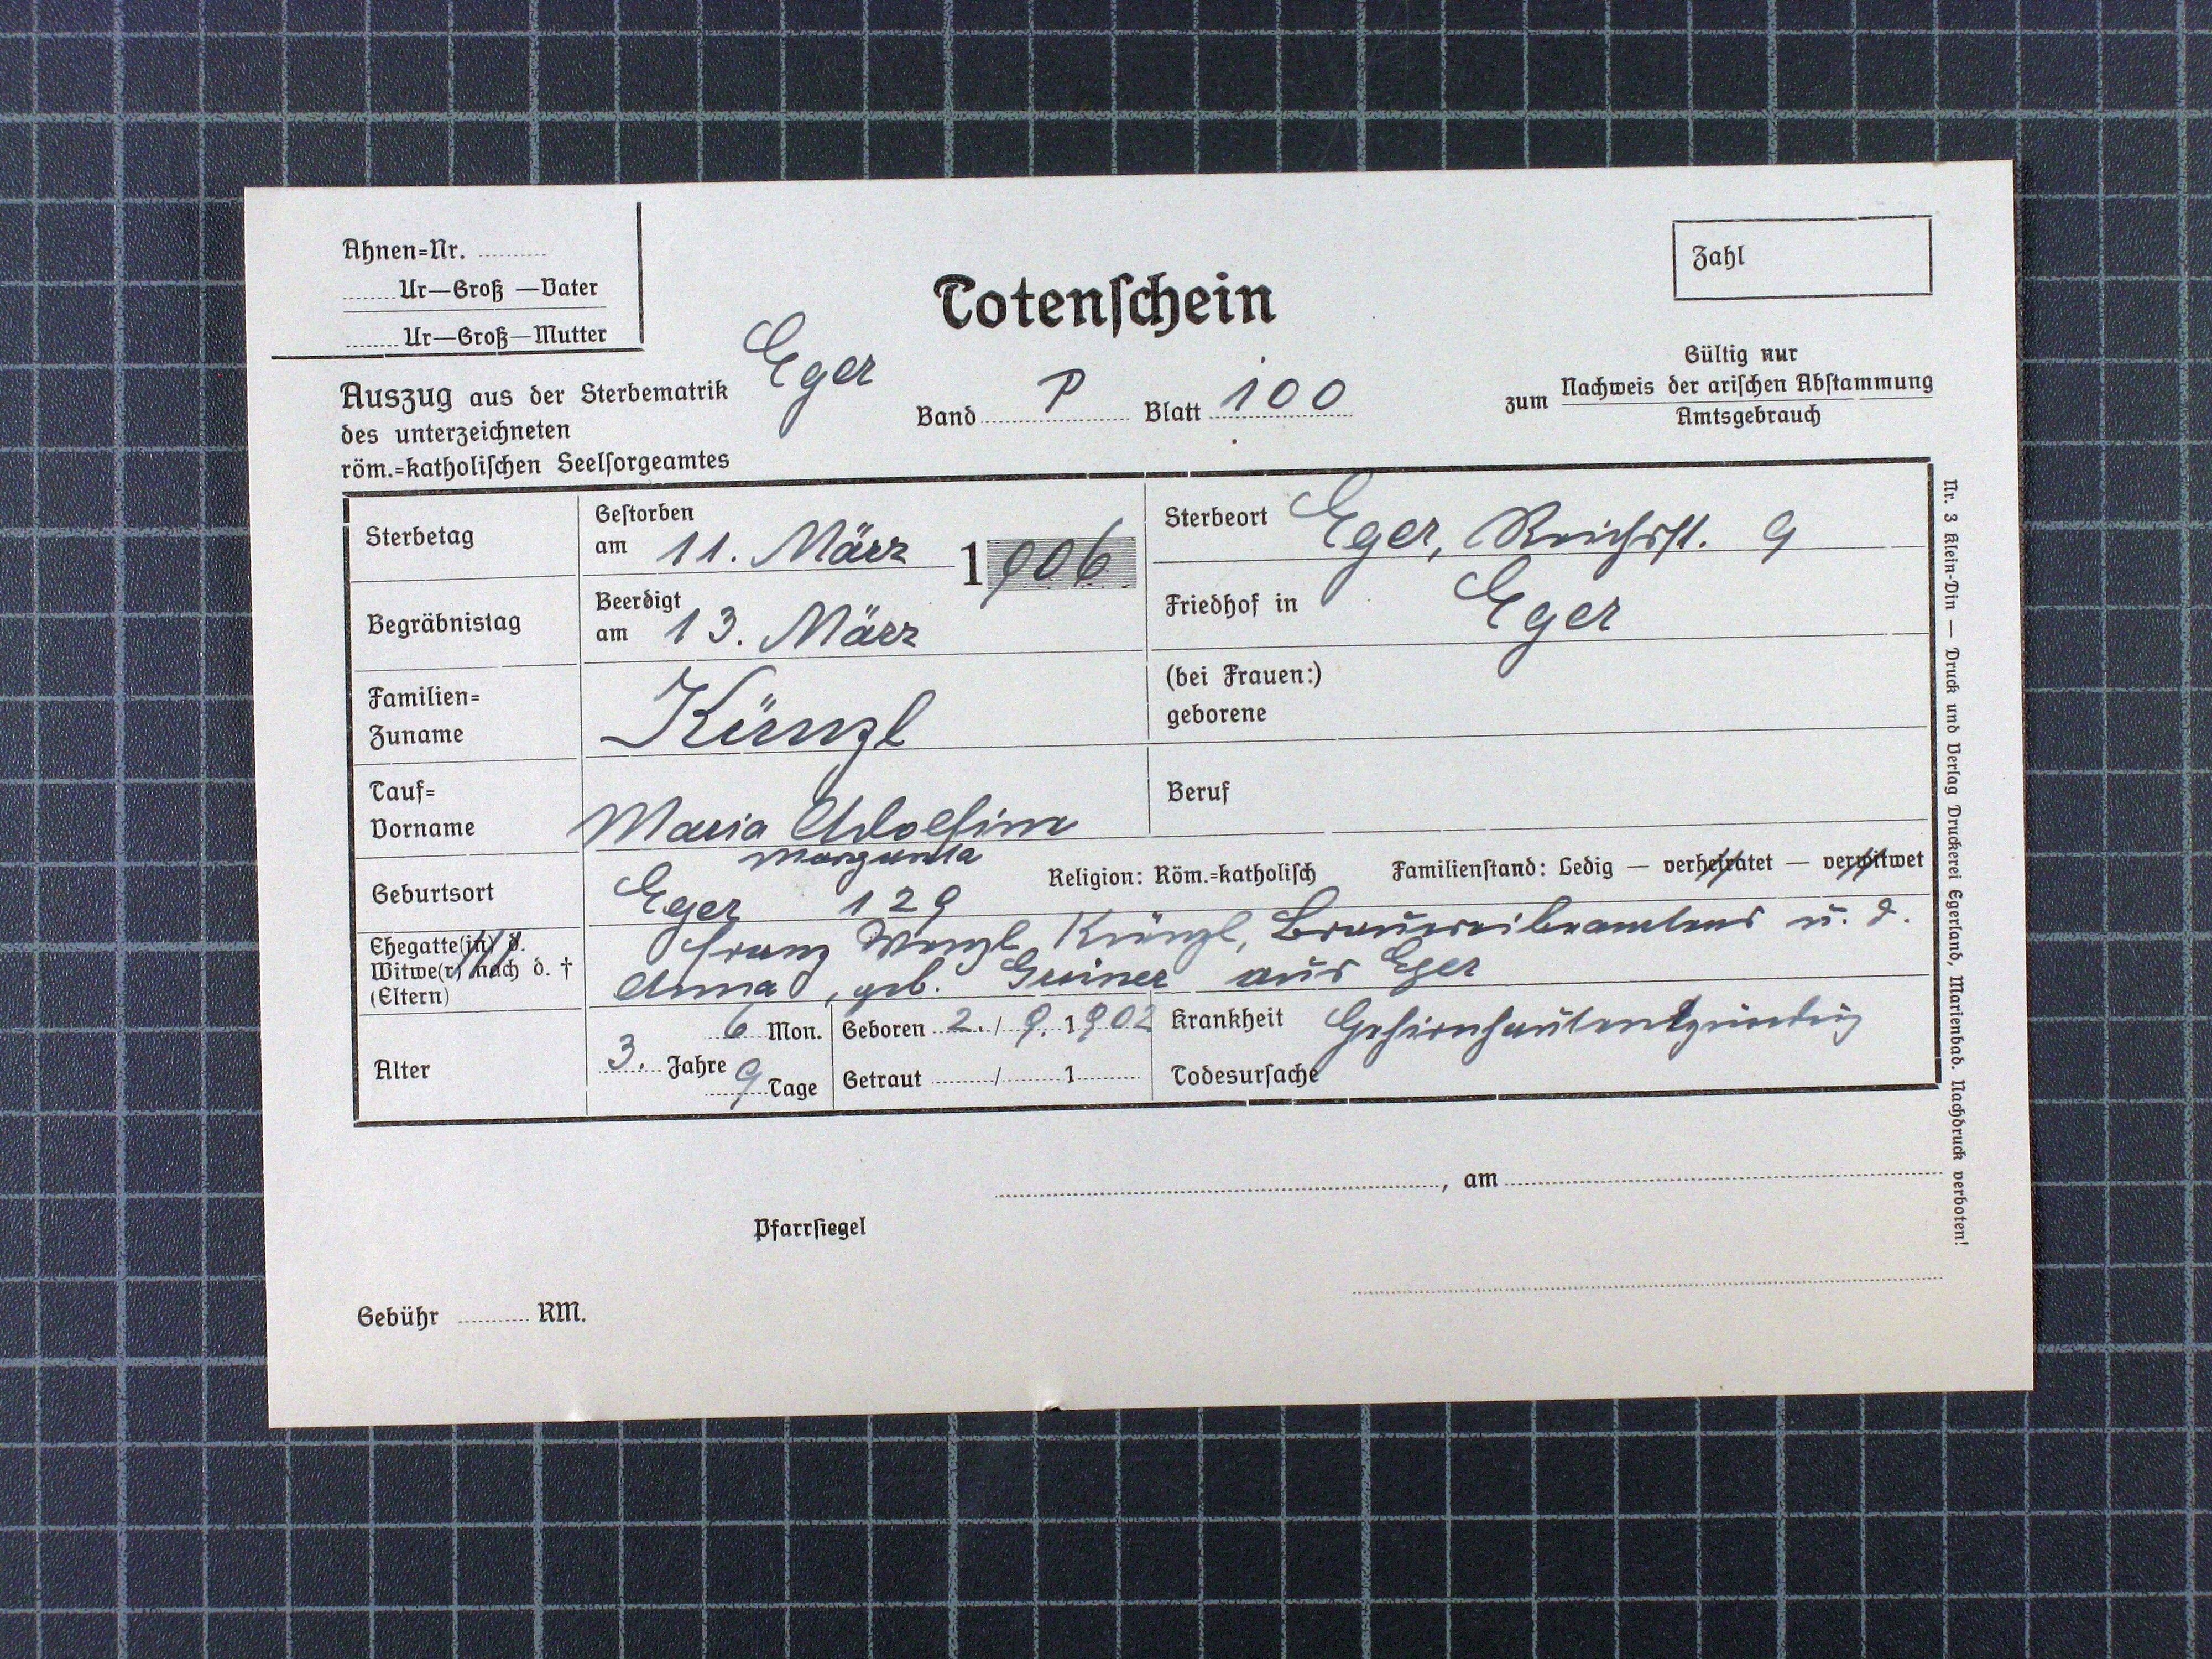 Ahnen=Nr. ..........
....... Ur—Groß —Vater
....... Ur—Groß—Mutter
Totenschein
Zahl
Gültig nur
zum Nachweis der arischen Abstammung
Amtsgebrauch
Auszug aus der Sterbematrik Eger
des unterzeichneten
röm.=katholischen Seelsorgeamtes
Band P Blatt 100
Sterbetag
Gestorben
am 11. März 1906
Sterbeort Eger, Reichsst. 9
Begräbnistag
Beerdigt
am 13. März
Friedhof in Eger
Familien=
Zuname
Künzl
(bei Frauen:)
geborene
Tauf=
Vorname
Maria Adolfine
Margareta
Beruf
Geburtsort
Eger 129
Religion: Röm.=katholisch
Familienstand: Ledig — verheiratet — verwitwet
Ehegatte(in) d.
Witwe(r) nach d. †
(Eltern)
Franz Wenzl Künzl, Brauereibeamtens u. d.
Anna, geb. Greiner aus Eger
Alter
3. Jahre 6 Mon.
9 Tage
Geboren 2. / 9. 1902
Getraut ......... / ......... 1 .........
Krankheit Gehirnhautentzündung
Todesursache
, am
Pfarrsiegel
Gebühr .......... RM.
Nr. 3 Klein-Din — Druck und Verlag Druckerei Egerland, Marienbad. Nachdruck verboten!